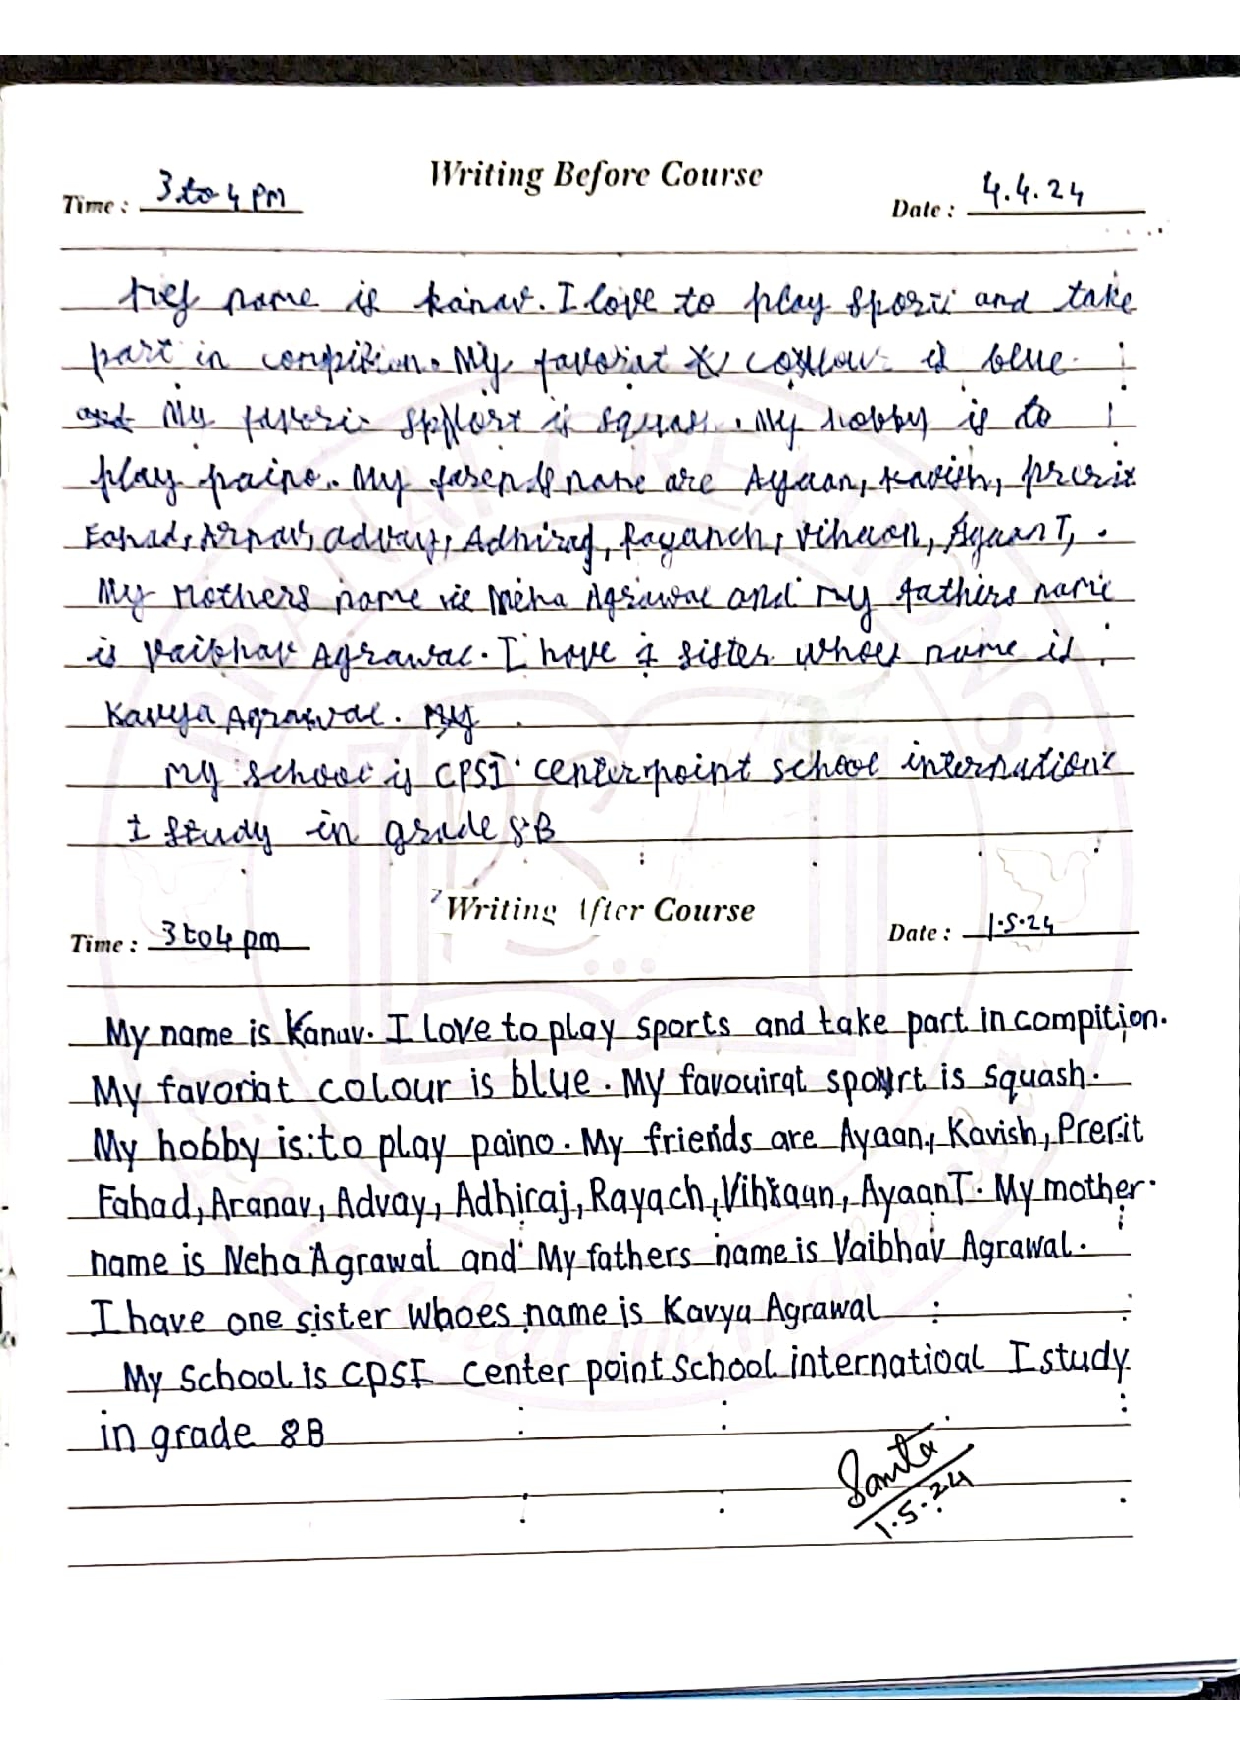 Writing Before Course
Time : 3 to 4 PM
Date : 4.4.24
My name is kanav. I love to play sports and take
part in compition. My favorat colour is blue
and My favorit spport is squash. My hobby is to
play paino. My friends name are Ayaan, Kavish, Prerit
Fahad, Arnav, advay, Adhiraj, Rayanch, Vihaan, AyaanT,
My mothers name is Neha Agrawal and my fathers name
is Vaibhav Agrawal. I have 1 sister whoes name is
Kavya Agrawal. My
my school is CPSI centerpoint school internation
I study in grade 8B
Writing After Course
Time : 3 to 4 pm
Date : 1.5.24
My name is Kanav. I Love to play sports and take part in compition.
My favoriat colour is blue. My favouirat spourt is squash.
My hobby is to play paino. My friends are Ayaan, Kavish, Prerit
Fahad, Aranav, Advay, Adhiraj, Rayach, Vihaan, AyaanT. My mother
name is Neha Agrawal and My fathers name is Vaibhav Agrawal.
I have one sister whoes name is Kavya Agrawal
My School is CPSI Center point School internatioal I study
in grade 8B
1.5.24